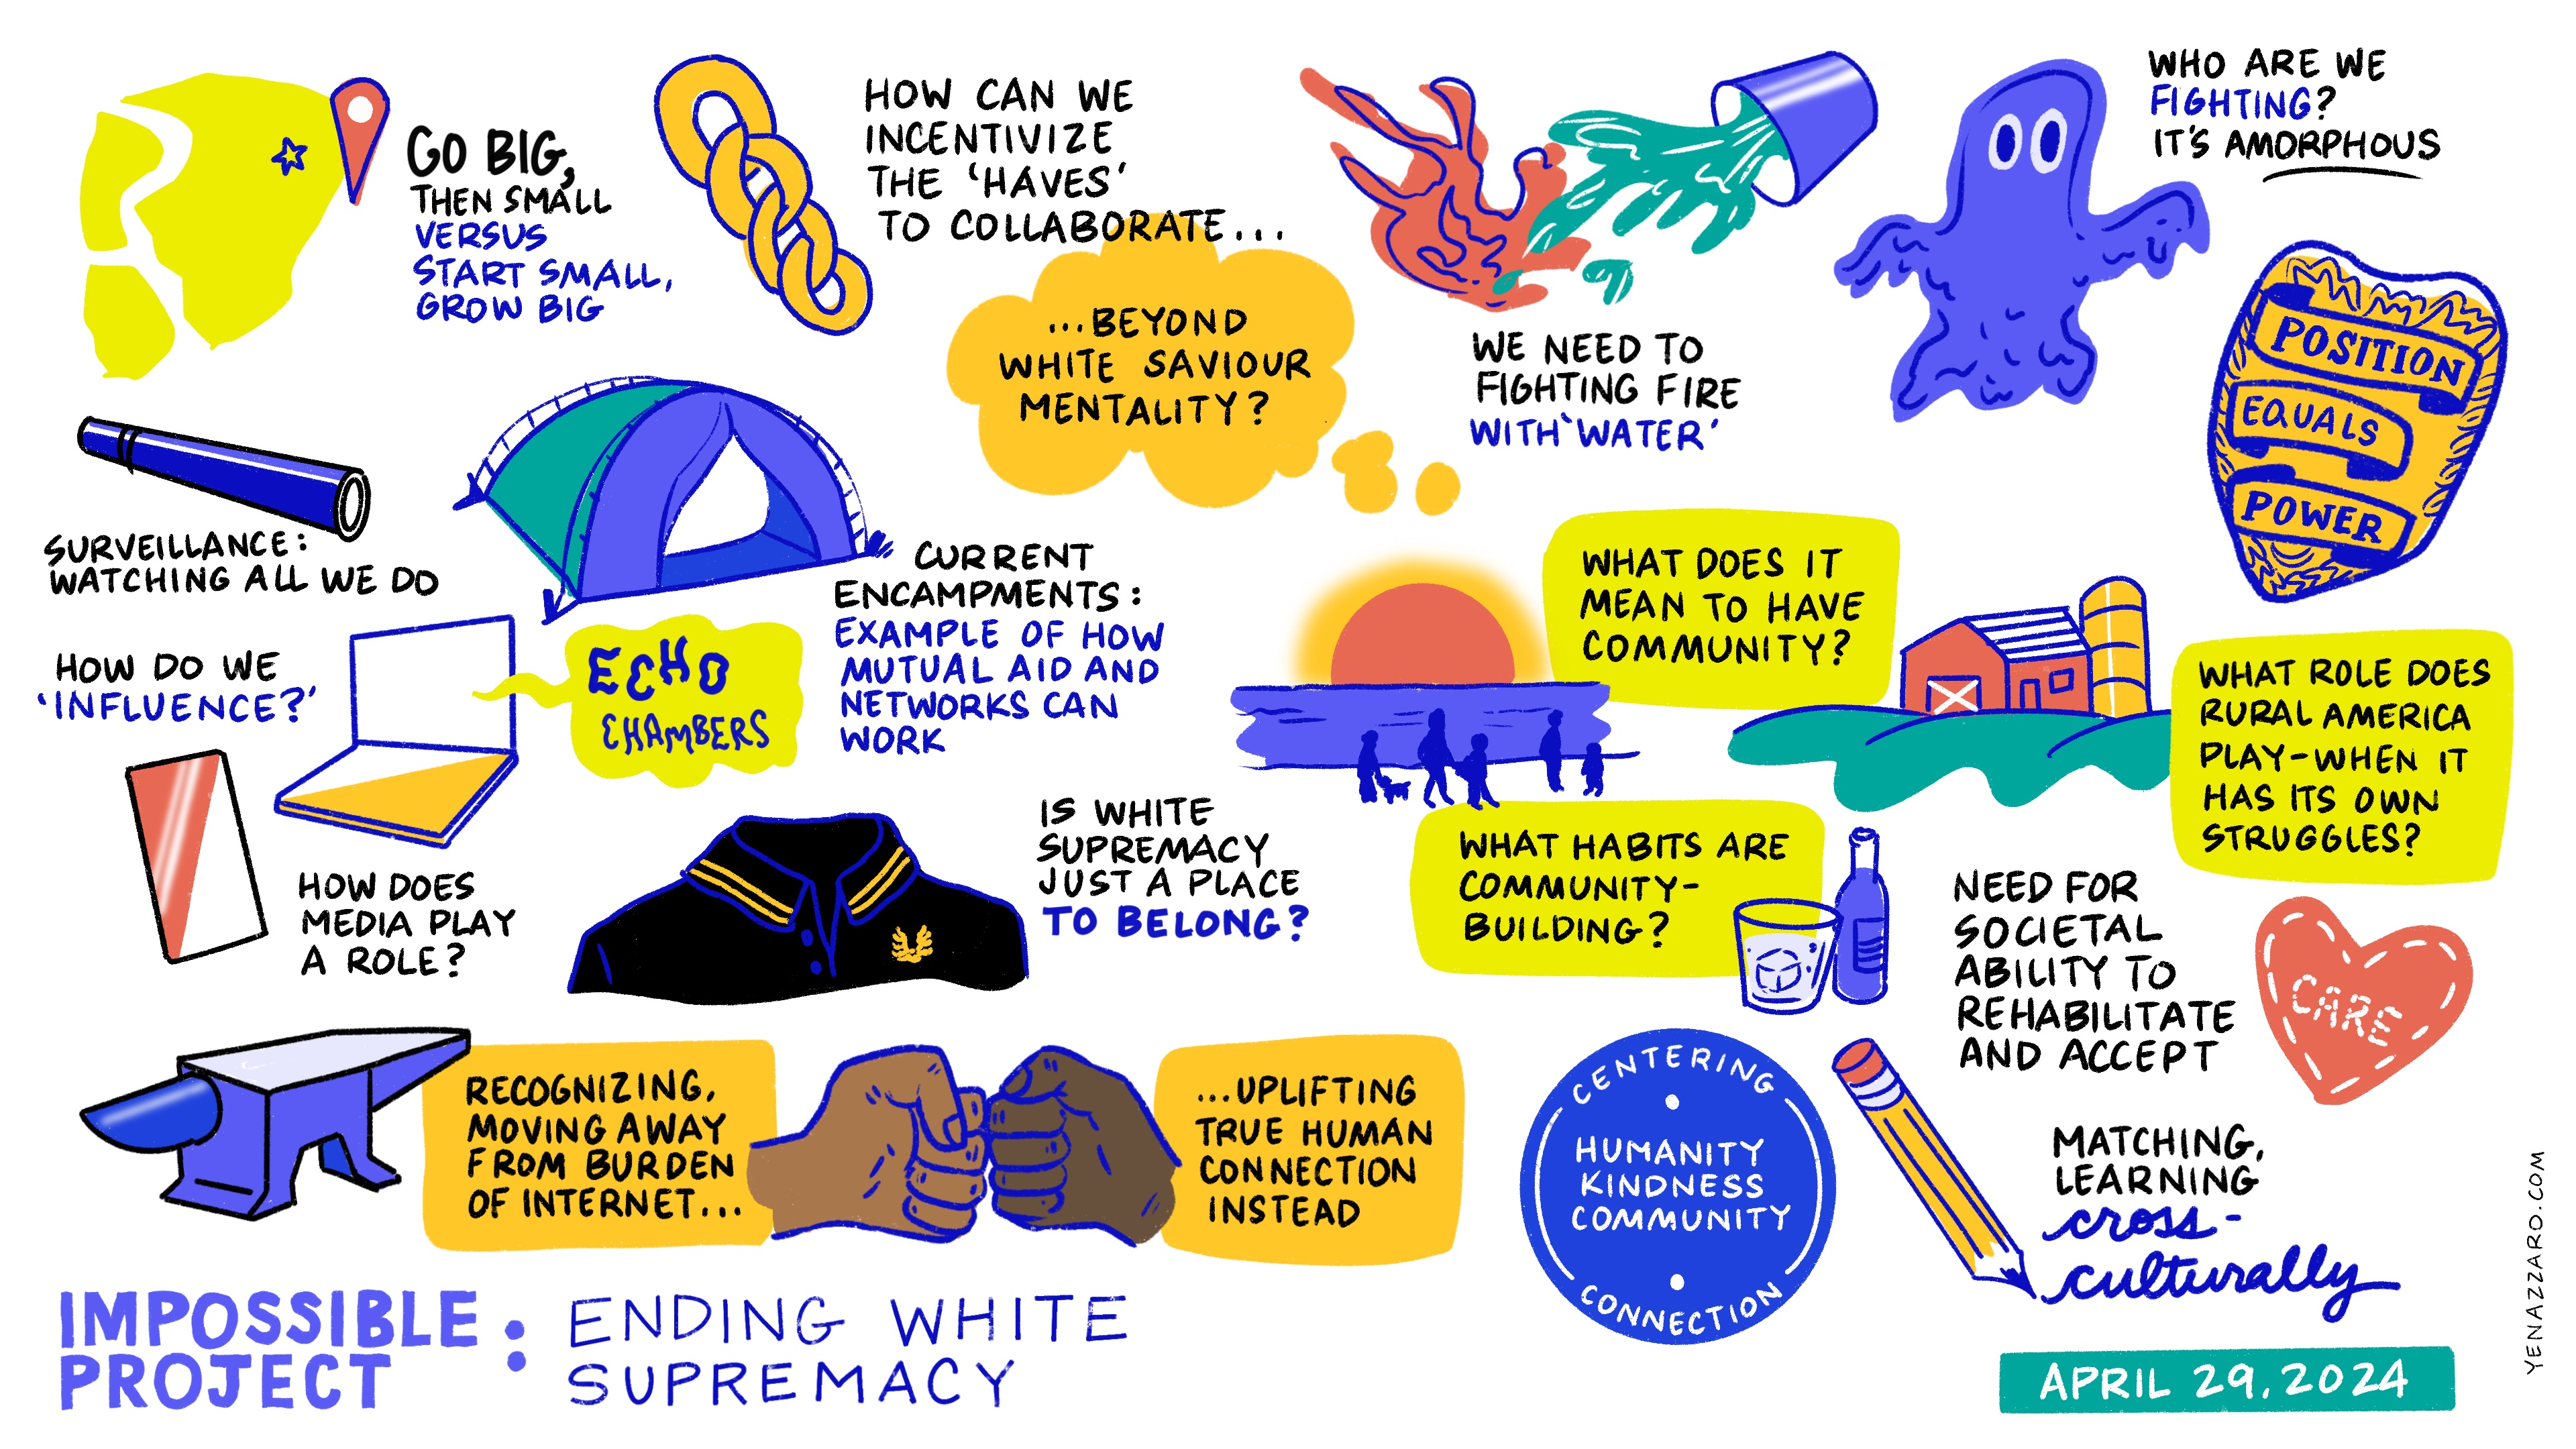 GO BIG,
THEN SMALL
VERSUS
START SMALL,
GROW BIG
HOW CAN WE
INCENTIVIZE
THE 'HAVES'
TO COLLABORATE...
...BEYOND
WHITE SAVIOUR
MENTALITY?
WE NEED TO
FIGHTING FIRE
WITH 'WATER'
WHO ARE WE
FIGHTING?
IT'S AMORPHOUS
POSITION
EQUALS
POWER
SURVEILLANCE:
WATCHING ALL WE DO
HOW DO WE
'INFLUENCE?'
ECHO
CHAMBERS
CURRENT
ENCAMPMENTS:
EXAMPLE OF HOW
MUTUAL AID AND
NETWORKS CAN
WORK
WHAT DOES IT
MEAN TO HAVE
COMMUNITY?
WHAT ROLE DOES
RURAL AMERICA
PLAY-WHEN IT
HAS ITS OWN
STRUGGLES?
HOW DOES
MEDIA PLAY
A ROLE?
IS WHITE
SUPREMACY
JUST A PLACE
TO BELONG?
WHAT HABITS ARE
COMMUNITY-
BUILDING?
NEED FOR
SOCIETAL
ABILITY TO
REHABILITATE
AND ACCEPT
CARE
RECOGNIZING,
MOVING AWAY
FROM BURDEN
OF INTERNET...
...UPLIFTING
TRUE HUMAN
CONNECTION
INSTEAD
CENTERING
HUMANITY
KINDNESS
COMMUNITY
CONNECTION
MATCHING,
LEARNING
cross-
culturally
IMPOSSIBLE
PROJECT :
ENDING WHITE
SUPREMACY
APRIL 29, 2024
YENAZZARO.COM